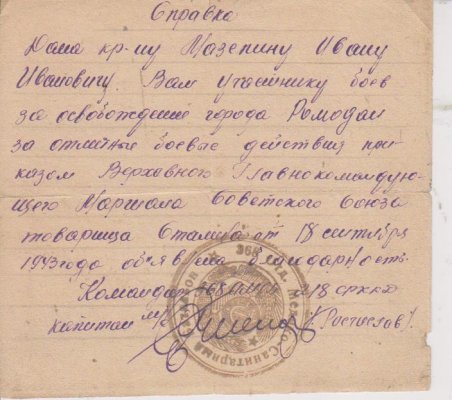 Справка
Дана кр-цу Мазепину Ивану
Ивановичу. Вам участнику боев
за освобождение города Ромодан
за отличные боевые действия при-
казом Верховного Главнокомандую-
щего Маршала Советского Союза
товарища Сталина от 18 сентября
1943 года объявлена благодарность.
Командир 368
капитан м/с (Ростислов).